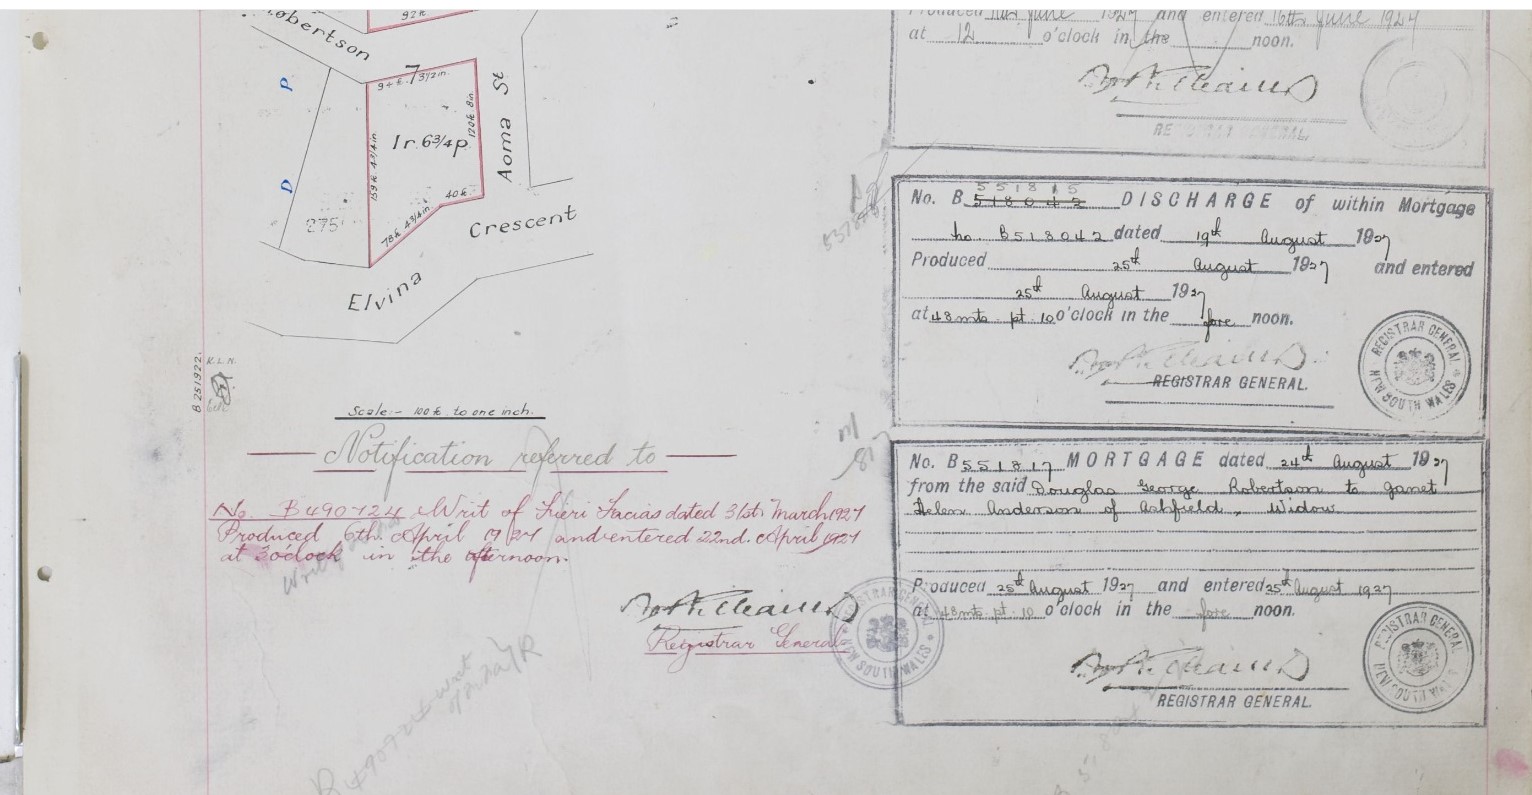 Robertson
92 ft
7
94 ft 3½ in.
P
D
159 ft 4¾ in.
1r. 6¾p
120 ft 8 in.
Aoma St
40 ft
78 ft 4¾ in.
275
Crescent
Elvina
B 251922.
Scale:- 100 ft to one inch.
Notification referred to
No. B490724 Writ of Fieri Facias dated 31st March 1927
Produced 6th April 1927 and entered 22nd. April 1927
at 3 o'clock in the afternoon.
Registrar General
REGISTRAR GENERAL NEW SOUTH WALES
B490724 Writ
Produced June 1927 and entered 16th June 1927
at 12 o'clock in the noon.
REGISTRAR GENERAL.
551815
No. B 518042 DISCHARGE of within Mortgage
No B518042 dated 19th August 1927
Produced 25th August 1927 and entered
25th August 1927
at 48 mts pt 10 o'clock in the fore noon.
REGISTRAR GENERAL.
REGISTRAR GENERAL NEW SOUTH WALES
No. B551817 MORTGAGE dated 24th August 1927
from the said Douglas George Robertson to Janet
Helen Anderson of Ashfield, Widow
Produced 25th August 1927 and entered 25th August 1927
at 48 mts pt 10 o'clock in the fore noon.
REGISTRAR GENERAL.
REGISTRAR GENERAL NEW SOUTH WALES